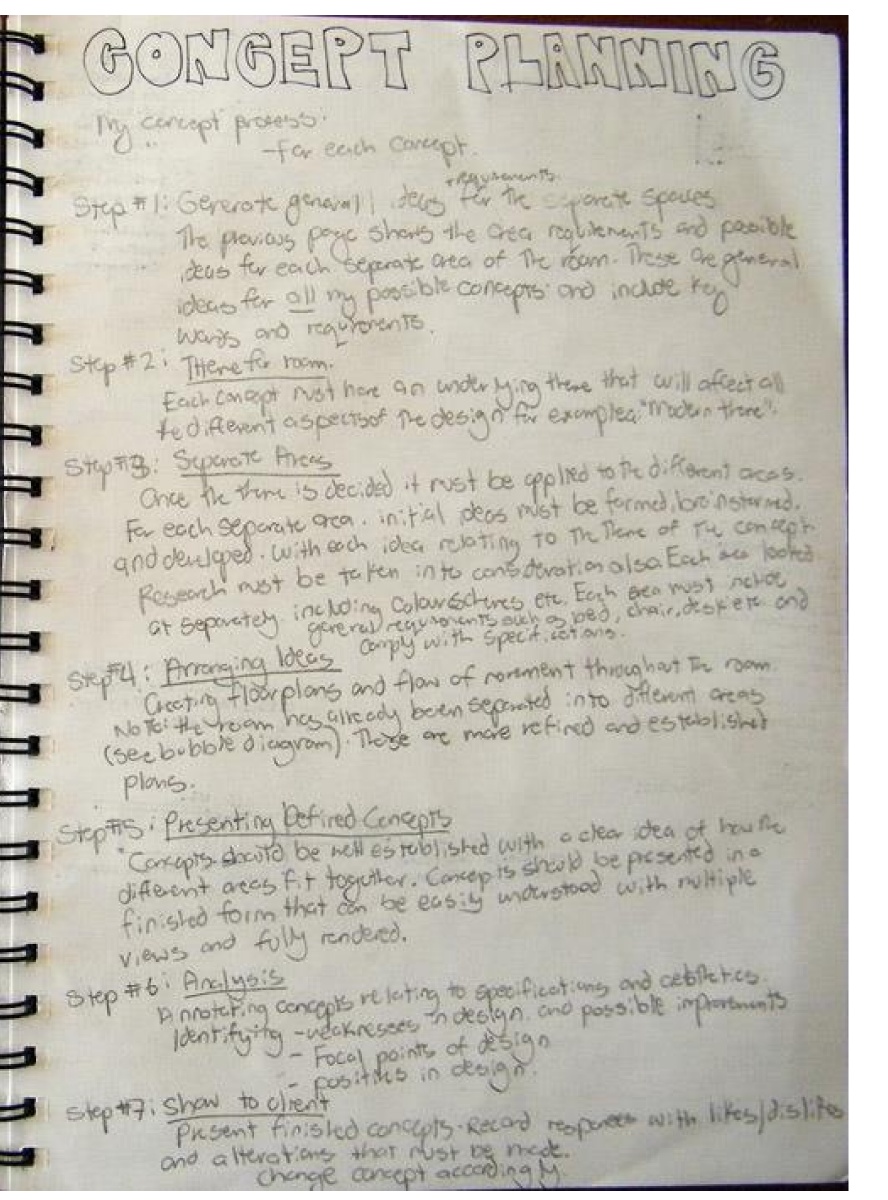 CONCEPT PLANNING
My concept process.
- for each concept.
+ requirements
Step #1: Generate general ideas for the separate spaces
The previous page shows the area requirements and possible
ideas for each separate area of the room. These are general
ideas for all my possible concepts and include key
words and requirements.
Step #2: Theme for room.
Each concept must have an underlying theme that will affect all
the different aspects of the design for example a "Modern theme".
Step #3: Separate Areas
Once the theme is decided it must be applied to the different areas.
For each separate area. initial ideas must be formed, brainstormed.
and developed. with each idea relating to the theme of the concept
Research must be taken into consideration also. Each area looked
at separately including colour schemes etc. Each area must include
general requirements such as bed, chair, desk etc and
comply with specifications.
Step #4: Arranging Ideas
Creating floorplans and flow of movement throughout the room.
Note: the room has already been separated into different areas
(see bubble diagram). These are more refined and established
plans.
Step #5: Presenting Defined Concepts
Concepts should be well established with a clear idea of how the
different areas fit together. Concepts should be presented in a
finished form that can be easily understood with multiple
views and fully rendered.
Step #6: Analysis
Annotating concepts relating to specifications and aesthetics.
Identifying - weaknesses in design. and possible improvments
- Focal points of design
- positives in design.
Step #7: Show to client
Present finished concepts. Record responses with likes/dislikes
and alterations that must be made.
change concept accordingly